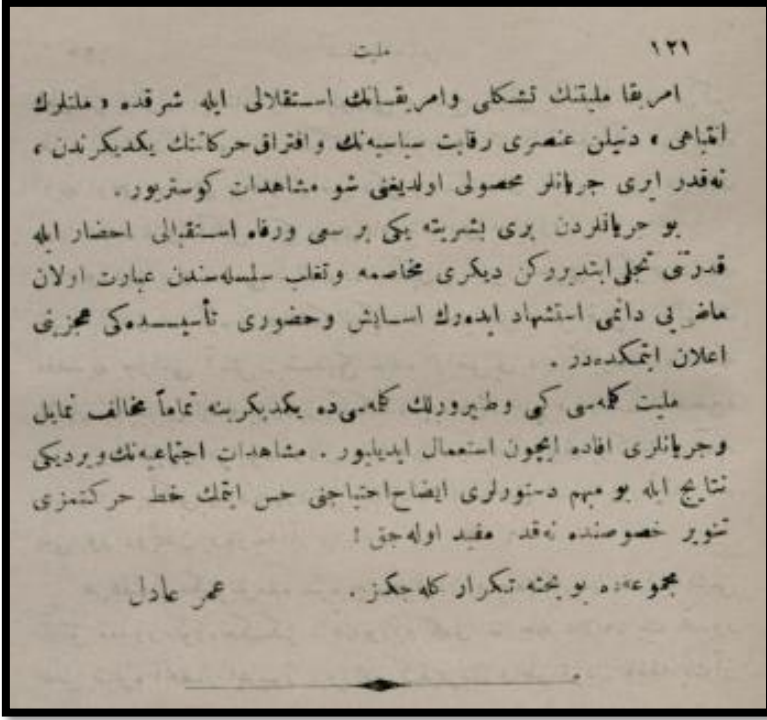 ١٢١ ملیت
امریقا ملیتنك تشكلی وامریقـانك اسـتقلالی ایله شرقده « ملتلرك
انتباهی » دنیلن عنصری رقابت سیاسیه‌نك وافتراق حركاتنك یكدیكرندن ،
نه‌قدر ایری جریانلر محصولی اولدیغنی شو مشاهدات كوستریور .
بو جریانلردن بری بشریته یكی بر سعی ورفاه اسـتقبالی احضار ایله
قدرتنی تجلی ایتدیرركن دیكری مخاصمه وتغلب سلسله‌سندن عبارت اولان
ماضی یی دائمی استشهاد ایده‌رك اسـایش وحضوری تأسیسـده‌كی عجزینی
اعلان ایتمكده‌در .
ملیت كله‌سی كبی وطنپرورلك كله‌سی‌ده یكدیكرینه تماماً مخالف تمایل
وجریانلری افاده ایچون استعمال ایدیلیور . مشاهدات اجتماعیه‌نك‌ویردیكی
نتایج ایله بو مبهم دستورلری ایضاح‌احتیاجنی حس ایتمك خط حركتمزی
تنویر خصوصنده نه‌قدر مفید اوله‌جق !
مجموعه‌ده بو بحثه تكرار كله‌جكز . عمر عادل